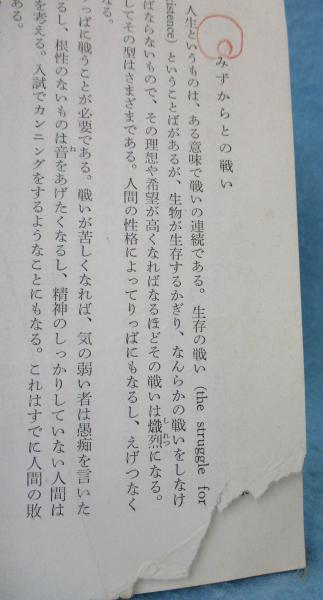 みずからとの戦い
人生というものは、ある意味で戦いの連続である。生存の戦い (the struggle for
existence) ということばがあるが、生物が生存するかぎり、なんらかの戦いをしなけ
ばならないもので、その理想や希望が高くなればなるほどその戦いは熾烈になる。
してその型はさまざまである。人間の性格によってりっぱにもなるし、えげつなく
なる。
っぱに戦うことが必要である。戦いが苦しくなれば、気の弱い者は愚痴を言いた
るし、根性のないものは音をあげたくなるし、精神のしっかりしていない人間は
を考える。入試でカンニングをするようなことにもなる。これはすでに人間の敗
ある。